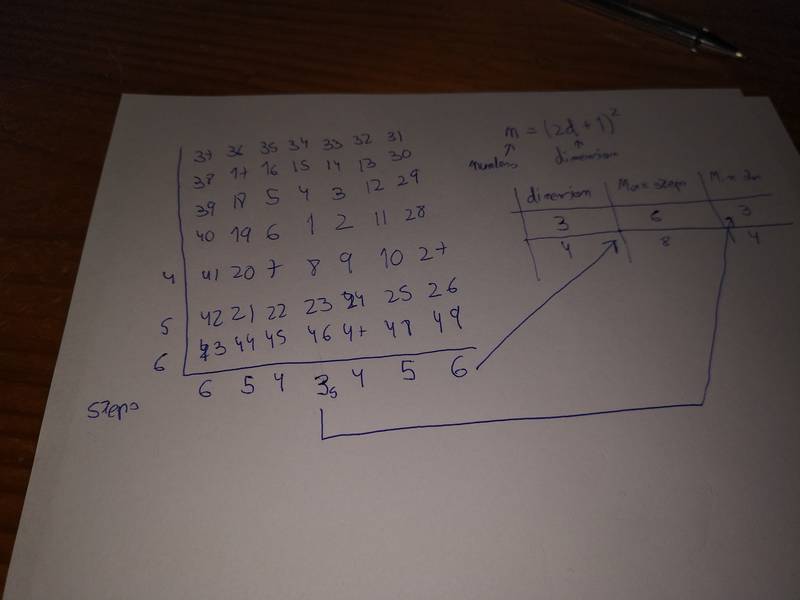 37 36 35 34 33 32 31
38 17 16 15 14 13 30
39 18 5 4 3 12 29
40 19 6 1 2 11 28
4 41 20 7 8 9 10 27
5 42 21 22 23 24 25 26
6 43 44 45 46 47 48 49
Steps 6 5 4 3 4 5 6
n = (2d + 1)²
numbers dimension
dimension Max steps Min
3 6 3
4 8 4